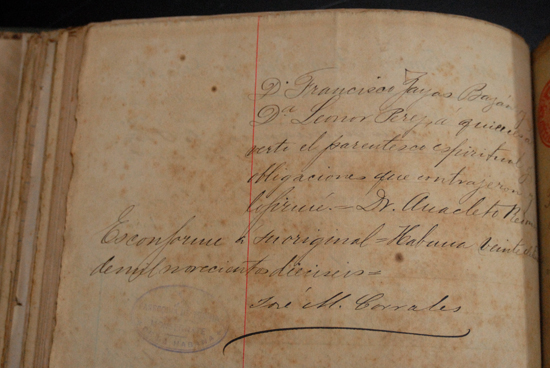 Dn Francisco Zayas Bazán
Da Leonor Pérez a quienes
verti el parentesco espiritual
obligaciones que contrajeron
lo firmé.= Dr. Anacleto
Es conforme a su original= Habana veinte
de mil novecientos dieciseis=
José M. Corrales
LA HABANA